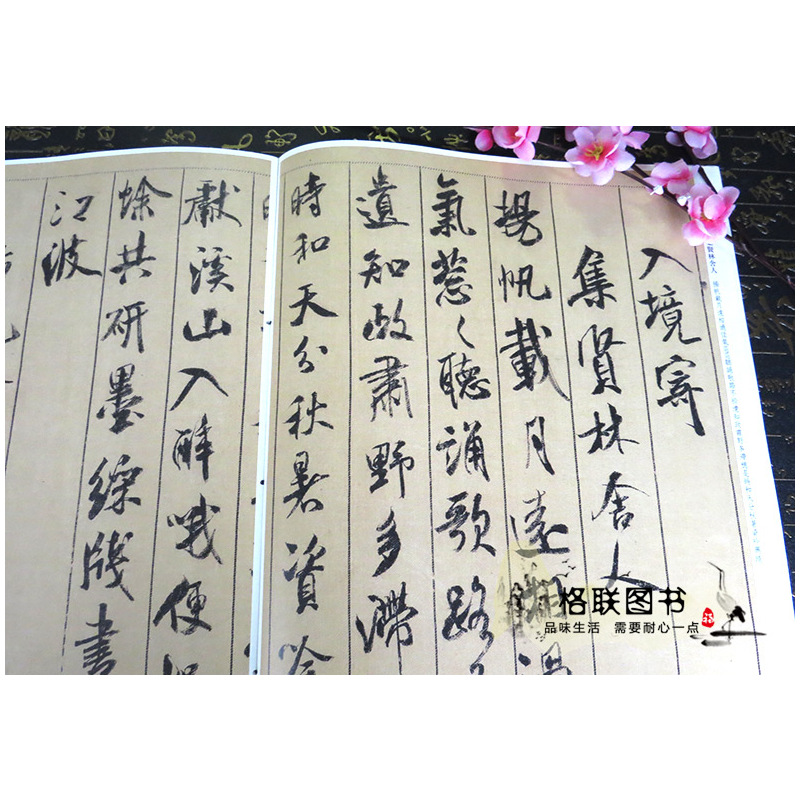 入境寄
集賢林舍人
揚帆載月遠相過
氣葱々聽誦歌路
遺知政肅野多滯
時和天分秋暑資吟
獻溪山入醉哦便
蜍共研墨綵牋書
江波
賢林舍人
格联图书
品味生活 需要耐心一点
福